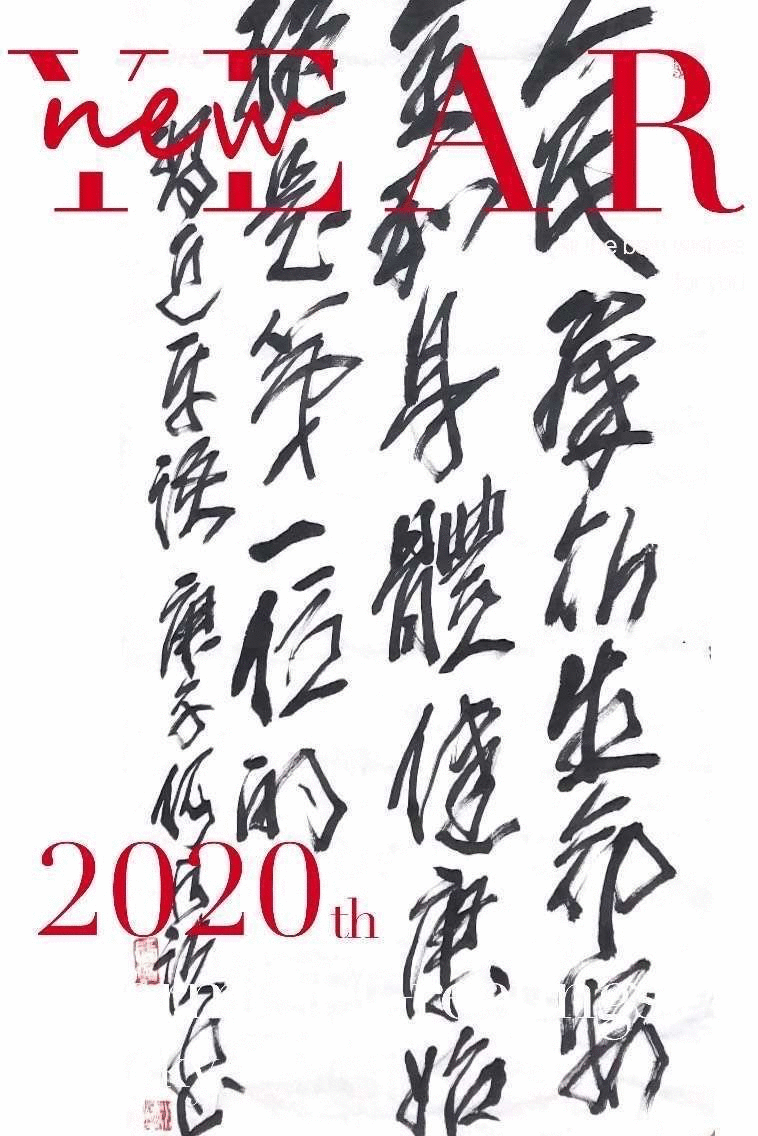 new
YEAR
all the best wishes
for you
人民羣众生命安
全和身體健康始
終是第一位的
習近平語 庚子
2020th